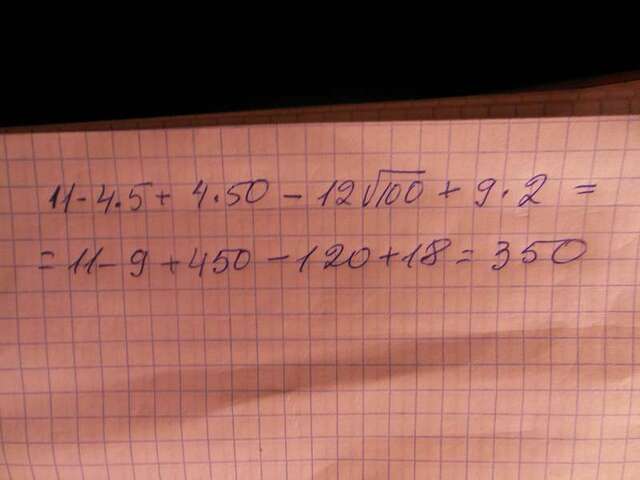 11-4.5+4.50-12√100+9.2=
=11-9+450-120+18=350